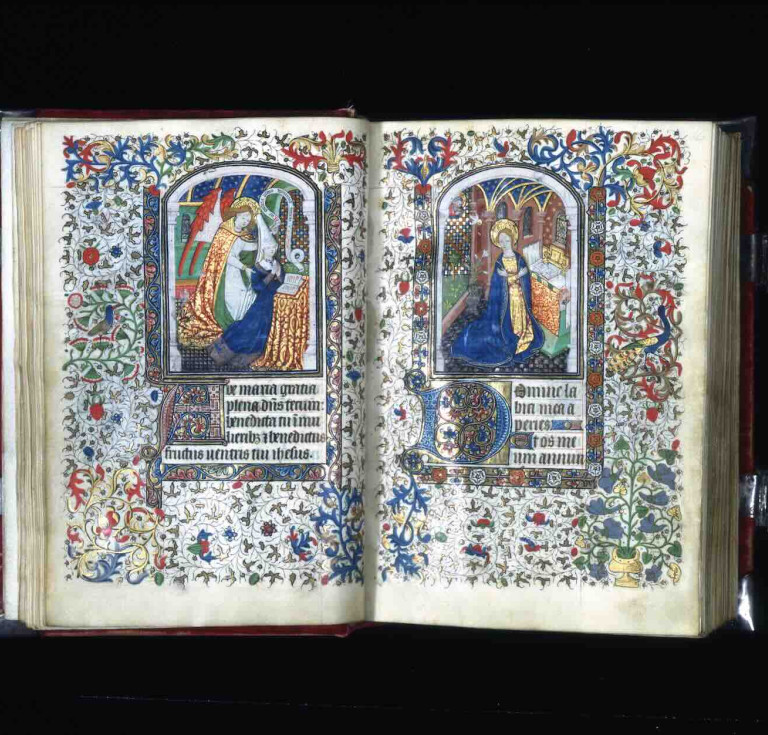 Ave maria gratia
plena dñs tecum:
benedicta tu ĩ mu
lieribꝫ ⁊ benedictus
fructus uentris tui ihesus.
Domine la
bia mea a
peries
Et os me
um annun